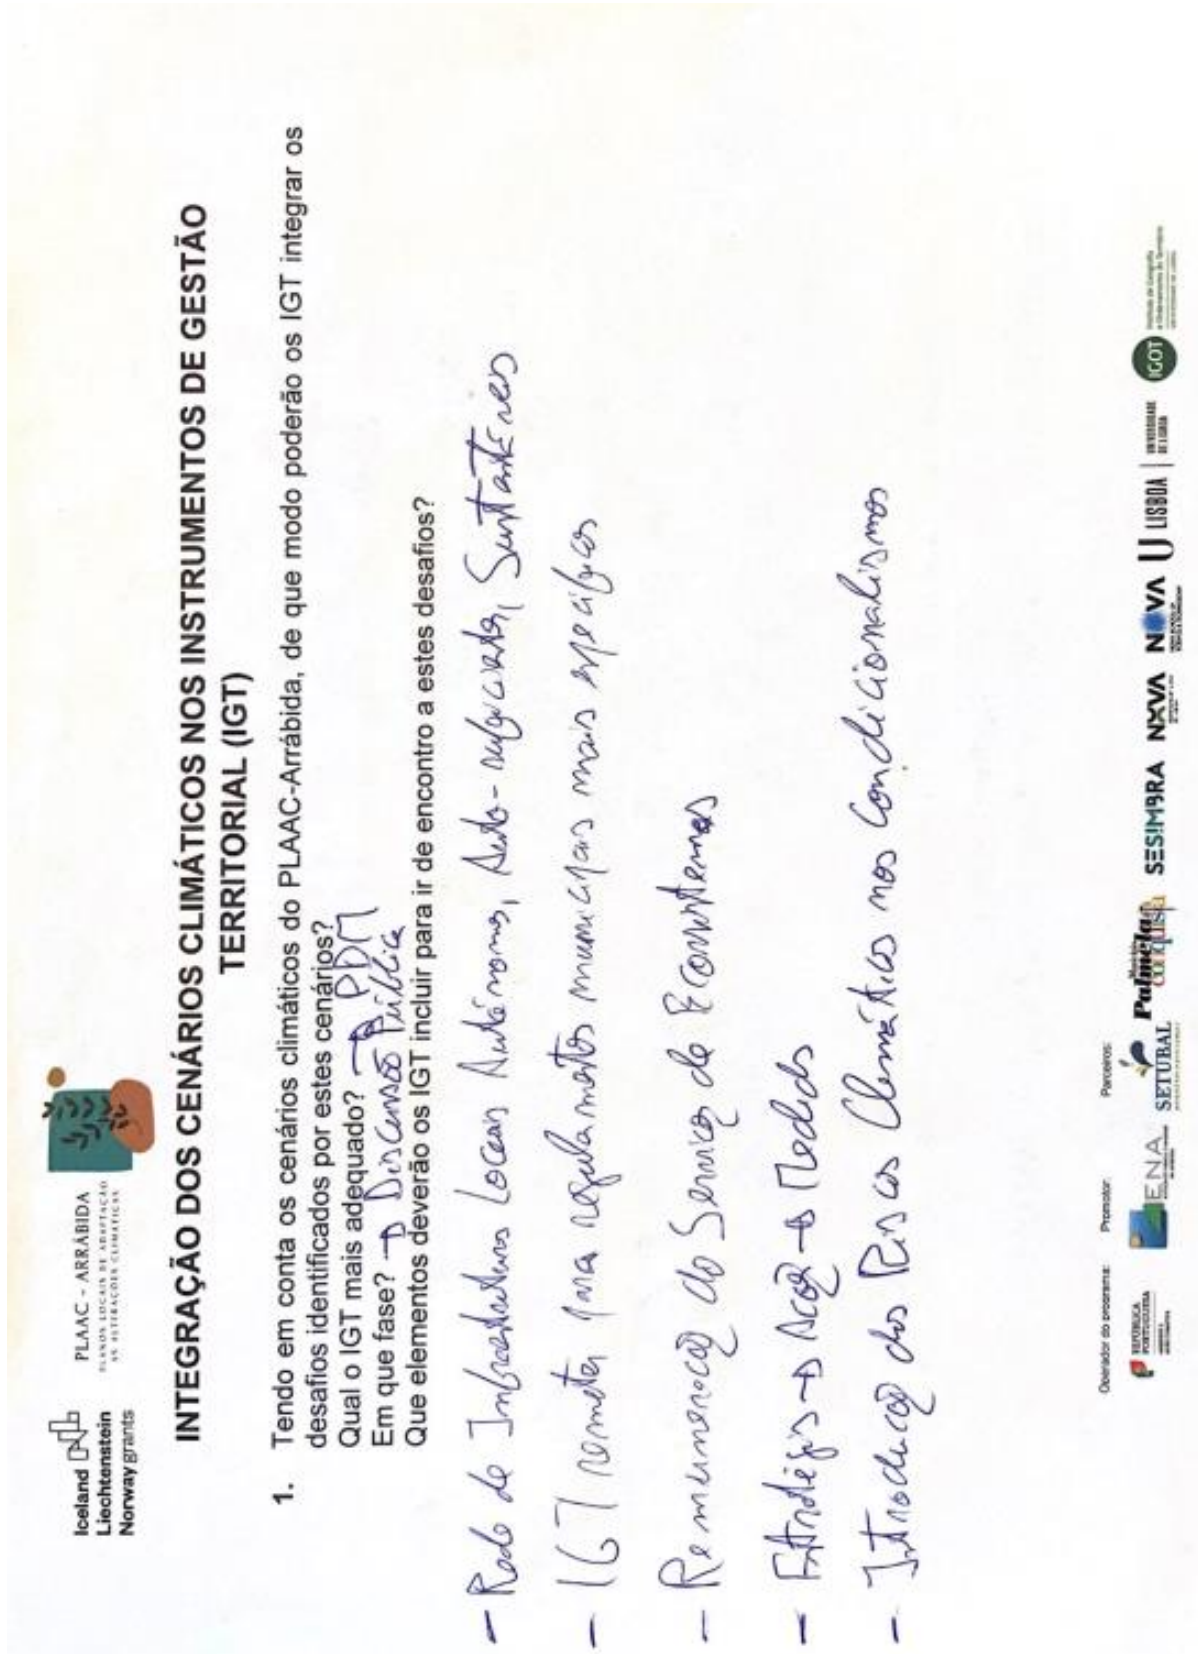 Iceland
Liechtenstein
Norway grants
PLAAC - ARRÁBIDA
PLANOS LOCAIS DE ADAPTAÇÃO
ÀS ALTERAÇÕES CLIMÁTICAS
INTEGRAÇÃO DOS CENÁRIOS CLIMÁTICOS NOS INSTRUMENTOS DE GESTÃO
TERRITORIAL (IGT)
1. Tendo em conta os cenários climáticos do PLAAC-Arrábida, de que modo poderão os IGT integrar os
desafios identificados por estes cenários?
Qual o IGT mais adequado? → PDM
Em que fase? → Discussão Pública
Que elementos deverão os IGT incluir para ir de encontro a estes desafios?
- Rede de Infraestruturas Locais Autónomas, Auto-suficientes, Sustentáveis
- IGT remeter para regulamentos municipais mais específicos
- Remuneração do Serviços de Ecossistemas
- Estratégias → Ação → Medidas
- Introdução dos Riscos Climáticos nos Condicionalismos
Operador do programa:
Promotor:
Parceiros:
REPÚBLICA
PORTUGUESA
ENA
SETÚBAL
Município
Palmela
conquista
SESIMBRA
NOVA
NOVA
U LISBOA
UNIVERSIDADE
DE LISBOA
IGOT
Instituto de Geografia
e Ordenamento do Território